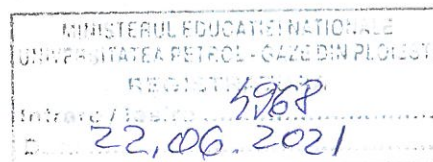 MINISTERUL EDUCAȚIEI NAȚIONALE
UNIVERSITATEA PETROL - GAZE DIN PLOIEȘTI
Intrare / Ieșire 4968
22,06.2021